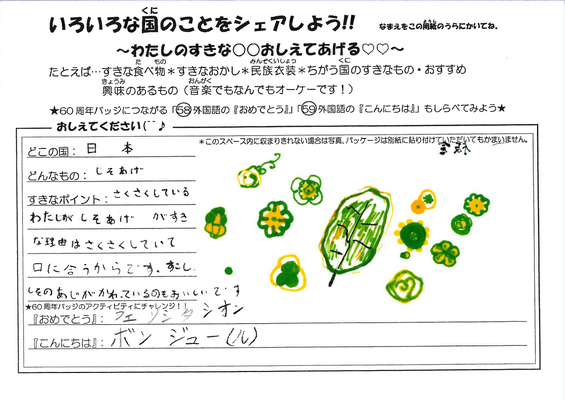 いろいろな国のことをシェアしよう!!
くに
なまえをこの用紙のうらにかいてね。
～わたしのすきな〇〇おしえてあげる♡♡～
たとえば…すきな食べ物＊すきなおかし＊民族衣装＊ちがう国のすきなもの・おすすめ
た もの みんぞくいしょう くに
興味のあるもの（音楽でもなんでもオーケーです！）
きょうみ おんがく
★60周年バッジにつながる「58外国語の『おめでとう』」「59外国語の『こんにちは』」もしらべてみよう★
おしえてください(¨ )♪
＊このスペース内に収まりきれない場合は写真、パッケージは別紙に貼り付けていただいてもかまいません。
どこの国：日 本
どんなもの：しそあげ
すきなポイント：さくさくしている
わたしが しそあげ がすき
な理由はさくさくしていて
口に合うからです。すこし
しそのあじがかわっているのもおいしいです
★60周年バッジのアクティビティにチャレンジ！！
『おめでとう』：フェリシタシオン
『こんにちは』：ボンジュー(ル)